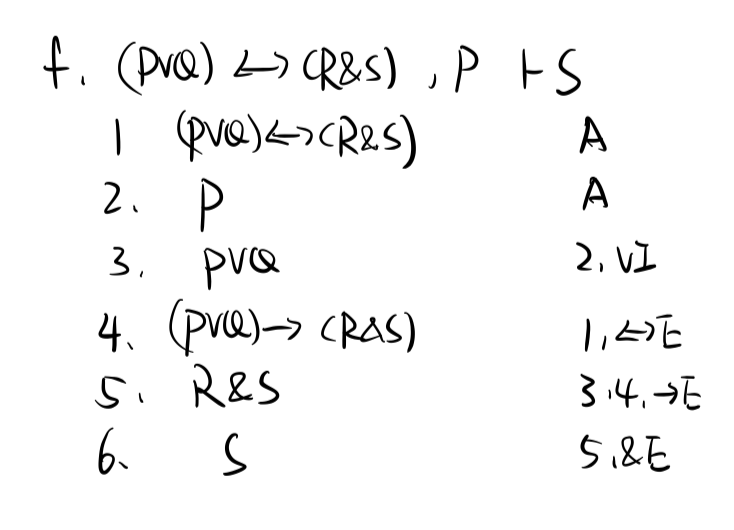 f. (PVQ) <-> (R&S) , P ⊢ S
1 (PVQ)<->(R&S) A
2. P A
3. PVQ 2, VI
4. (PVQ)-> (R&S) 1, <->E
5. R&S 3.4. ->E
6. S 5, &E